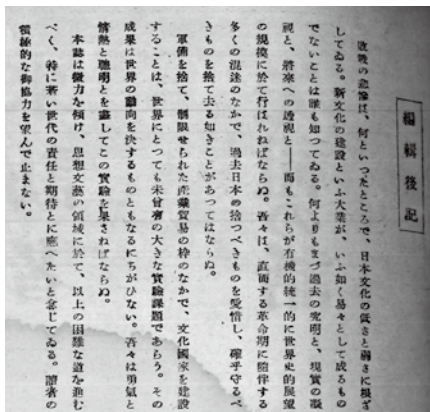 編輯後記
敗戰の悲慘は、何といつたところで、日本文化の低さと弱さに根ざ
してゐる。新文化の建設といふ大業が、いふ如く易々として成るもの
でないことは誰も知つてゐる。何よりもまづ過去の究明と、現實の凝
視と、將來への透視と――而もこれらが有機的統一的に世界史的展望
の規模に於て行はれねばならぬ。吾々は、直面する革命期に隨伴する
多くの混迷のなかで、過去日本の捨つべきものを愛惜し、確乎守るべ
きものを捨て去る如きことがあつてはならぬ。
軍備を捨て、制限せられた産業貿易の枠のなかで、文化國家を建設
することは、世界にとつても未曾有の大きな實驗課題であらう。その
成果は世界の動向を決するものともなるにちがひない。吾々は勇氣と
情熱と聰明とを盡してこの實驗を果さねばならぬ。
本誌は微力を傾け、思想文藝の領域に於て、以上の困難な道を進む
べく、特に若い世代の責任と期待とに應へたいと念じてゐる。讀者の
積極的な御協力を望んで止まない。